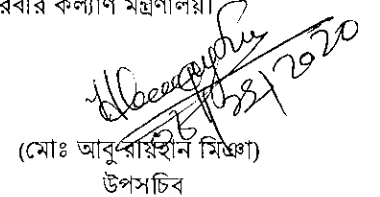 রবার কল্যাণ মন্ত্রণালয়।
২০২০
(মোঃ আবু রায়হান মিঞা)
উপসচিব